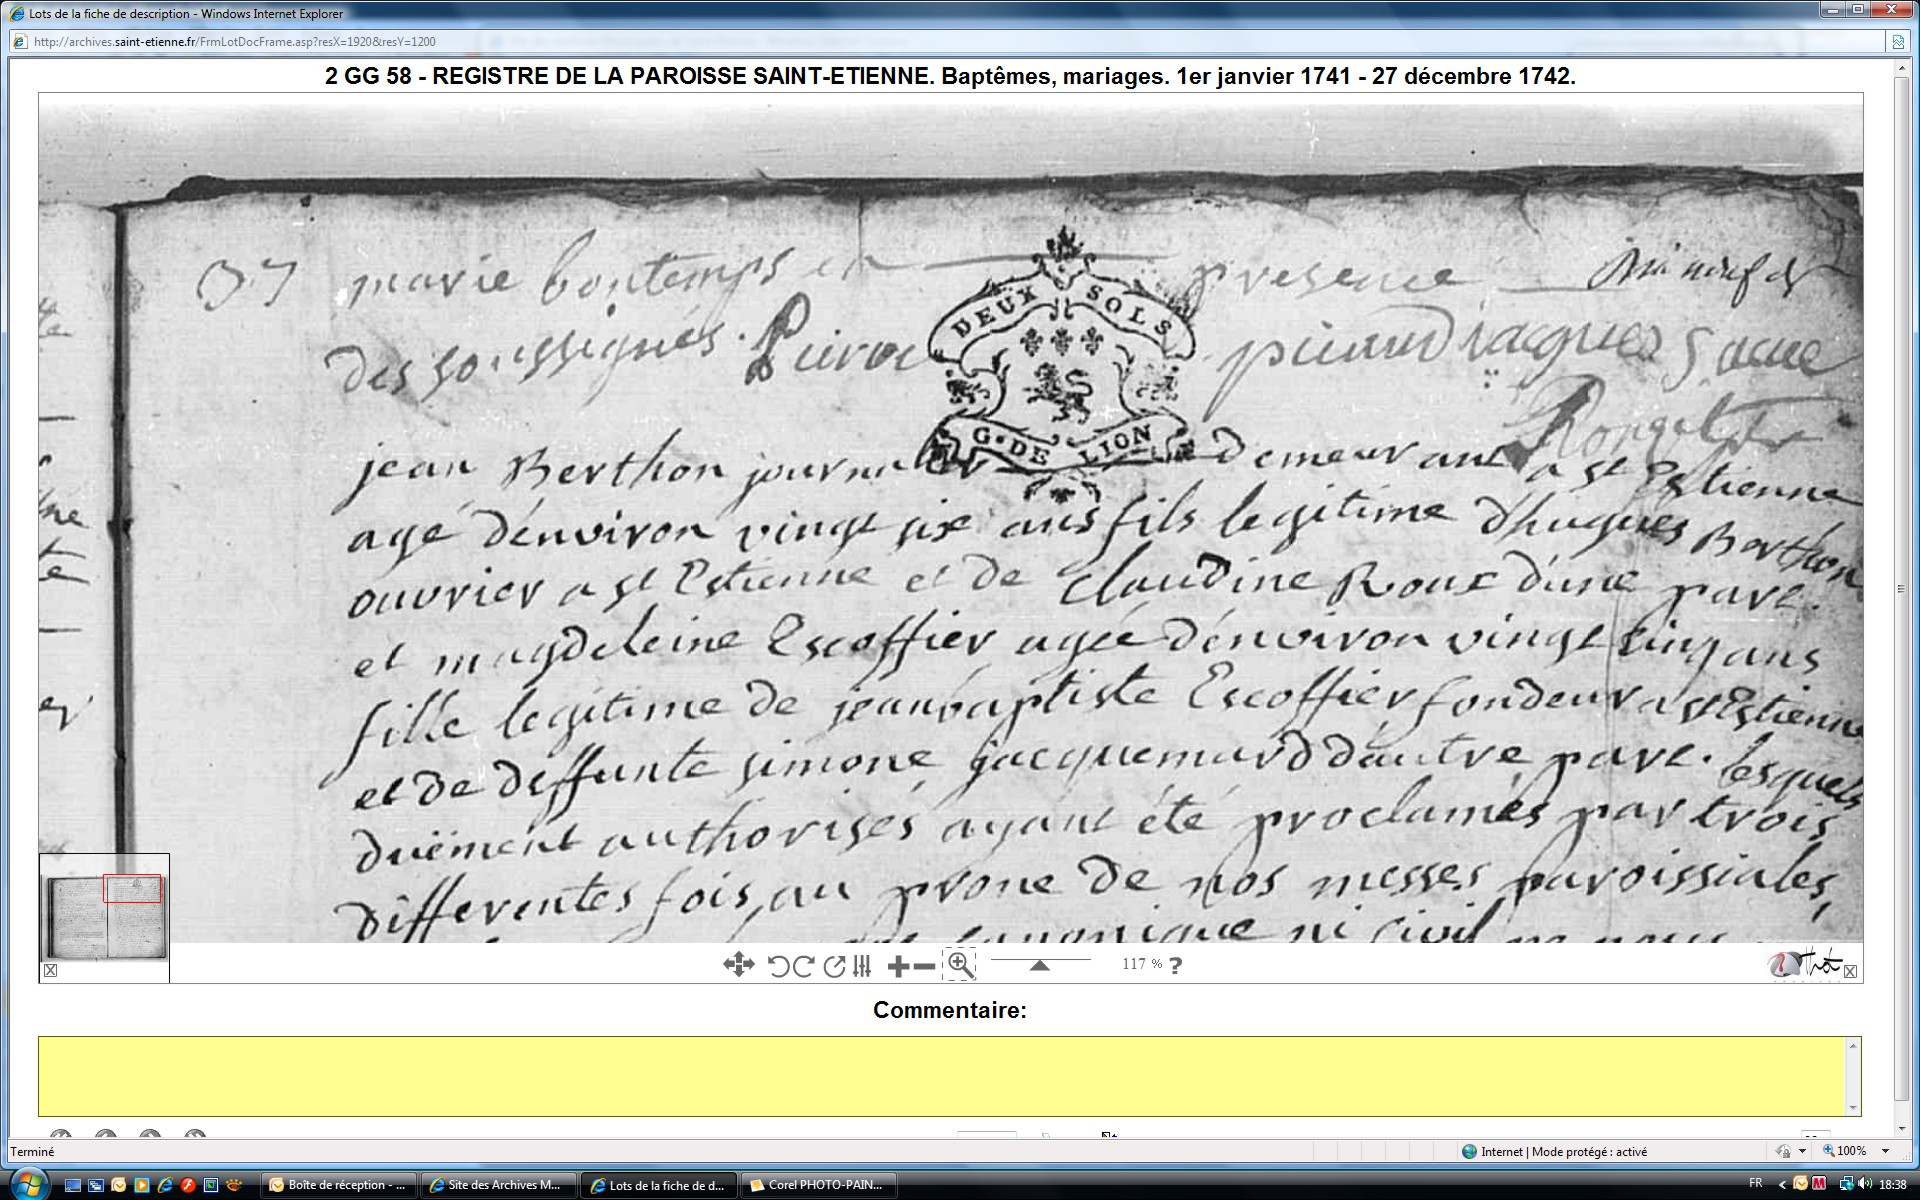 Lots de la fiche de description - Windows Internet Explorer
http://archives.saint-etienne.fr/FrmLotDocFrame.asp?resX=1920&resY=1200
2 GG 58 - REGISTRE DE LA PAROISSE SAINT-ETIENNE. Baptêmes, mariages. 1er janvier 1741 - 27 décembre 1742.
37 marie bontemps en presence
DEUX SOLS
des soussignés.
G. DE LION
jean Berthon journalier demeurant a st Estienne
agé d'environ vingt six ans fils legitime d'hugues Berthon
ouvrier a st Estienne et de Claudine Roux d'une part.
et magdeleine Escoffier agée d'environ vingt cinq ans
fille legitime de jean baptiste Escoffier fondeur a st Estienne
et de deffunte simone jacquemard d'autre part. lesquels
duëment authorisés ayant été proclamés par trois
differentes fois, au prone de nos messes paroissiales,
canonique ni civil ne nous
117 % ?
Commentaire:
Terminé
Internet | Mode protégé : activé
100%
Boîte de réception - ...
Site des Archives M...
Lots de la fiche de d...
Corel PHOTO-PAIN...
FR
18:38